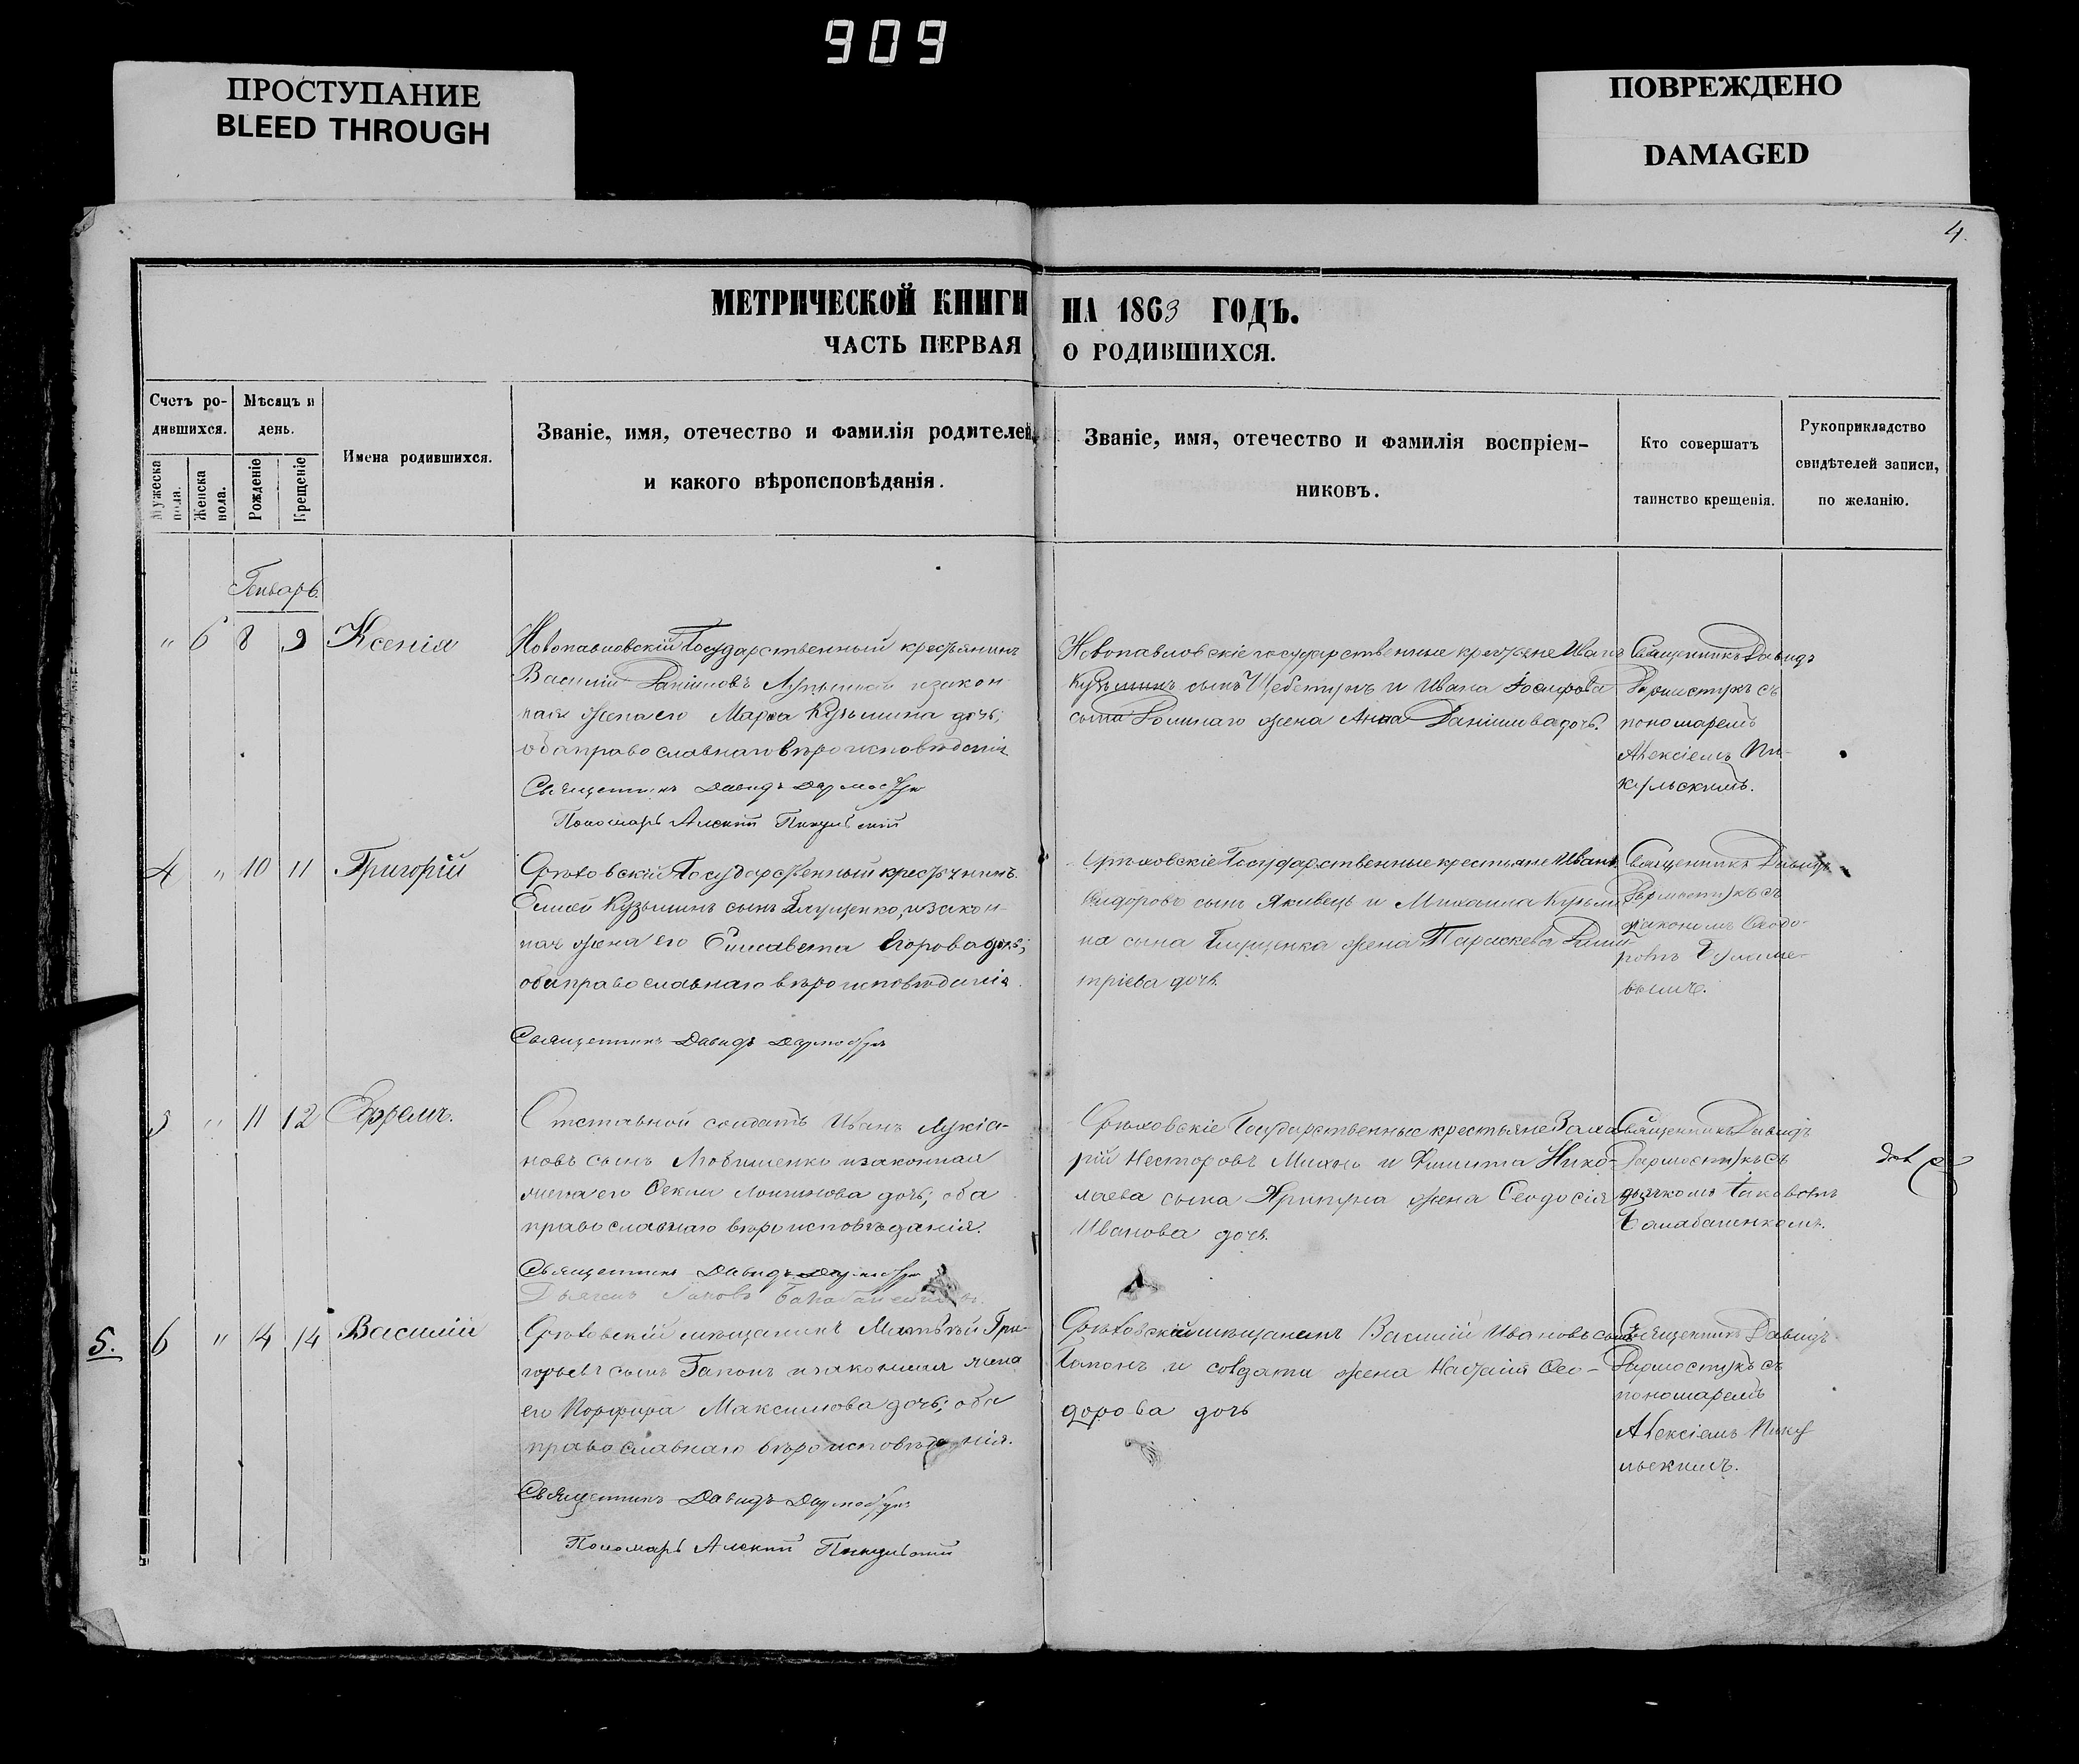 909
ПРОСТУПАНИЕ
BLEED THROUGH
ПОВРЕЖДЕНО
DAMAGED
4.
МЕТРИЧЕСКОЙ КНИГИ НА 1863 ГОДЪ.
ЧАСТЬ ПЕРВАЯ О РОДИВШИХСЯ.
Счетъ ро-
дившихся.
Мужеска
пола.
Женска
пола.
Мѣсяцъ и
день.
Рожденіе
Крещеніе
Имена родившихся.
Званіе, имя, отечество и фамилія родителей,
и какого вѣроисповѣданія.
Званіе, имя, отечество и фамилія воспріем-
никовъ.
Кто совершатъ
таинство крещенія.
Рукоприкладство
свидѣтелей записи,
по желанію.
Генварь
" 6 8 9 Ксенія
Новопавловскій Государственный крестьянинъ
Василій Даніиловъ и закон
ная жена его Марѳа Кузьмина дочь;
оба православнаго вѣроисповѣданія
Священникъ Давидъ Дармостукъ
Пономарь Алексій Пикульскій
Новопавловскіе государственные крестьяне Иванъ
Кузьминъ сынъ Щебетунъ и Ивана Іосифова
сына жена Анна Даніилова дочь.
Священникъ Давидъ
Дармостукъ съ
пономаремъ
Алексіемъ Пи-
кульскимъ.
4 " 10 11 Григорій
Орѣховскій Государственный крестьянинъ
Кузьминъ сынъ Глущенко, и закон-
ная жена его Елисавета Егорова дочь;
оба православнаго вѣроисповѣданія.
Священникъ Давидъ Дармостукъ
Орѣховскіе Государственные крестьяне Иванъ
Сидоровъ сынъ Яковецъ и Михаила Кузьми
на сына Глущенка жена Параскева Дими-
тріева дочь.
Священникъ Давидъ
Дармостукъ съ
діакономъ Ѳеодо-
ромъ
5 " 11 12 Ефремъ.
Отставной солдатъ Иванъ Лукіа-
новъ сынъ и законная
жена его Логинова дочь; оба
православнаго вѣроисповѣданія.
Священникъ Давидъ Дармостукъ
Дьячекъ Іаковъ
Орѣховскіе Государственные крестьяне Заха
рій Несторовъ и Никиты Нико-
лаева сына жена Ѳеодосія
Иванова дочь.
Священникъ Давидъ
Дармостукъ съ
дьячкомъ Іаковомъ
5.
6 " 14 14 Василій
Орѣховскій мѣщанинъ Матѳей Гри-
горьевъ сынъ Гапонъ и законная жена
его Порфира Максимова дочь; оба
православнаго вѣроисповѣданія.
Священникъ Давидъ Дармостукъ
Пономарь Алексій Пикульскій
Орѣховскій мѣщанинъ Василій Ивановъ сынъ
Гапонъ и солдатка жена Наталія Ѳео-
дорова дочь
Священникъ Давидъ
Дармостукъ съ
пономаремъ
Алексіемъ Пику
льскимъ.